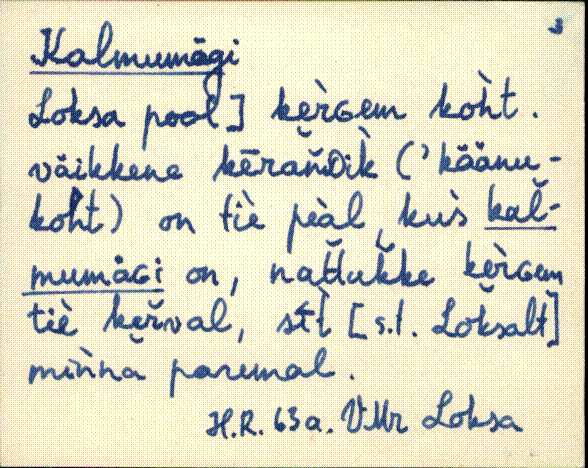 3
Kalmumägi
Loksa pool] kèrgem kòht.
väikkene kērań̆Dìk (’käänu-
koht) on tiè pèàl, kus̀ kal̆-
mumäGi on, nat̆t̆uk̆ke kèrGem
tiè kèr̆val, sīt̀ [s.t. Lok̆salt̀]
mińna paremal.
H.R. 63a. VMr Loksa